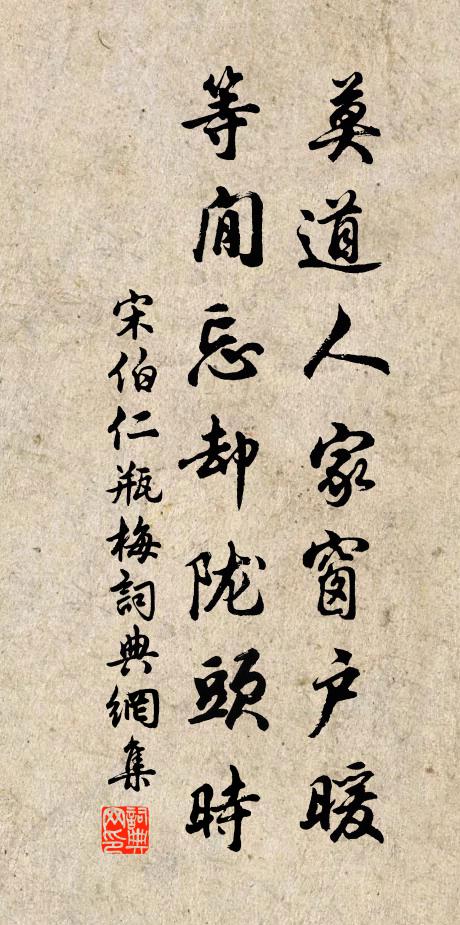 莫道人家窗户暖
等閒忘却陇頭時
宋伯仁瓶梅詞典網集
詞典网印